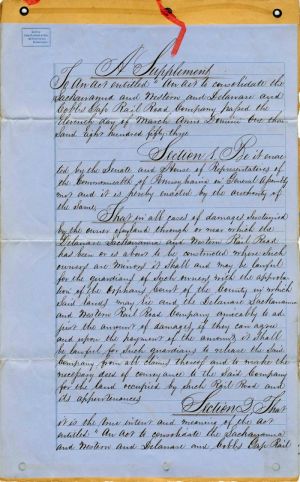 A Supplement
To An Act entitled "An Act to consolidate the
Lackawanna and Western and Delaware and
Cobbs Gap Rail Road Company passed the
Eleventh day of March Anno Domini One thou
sand eight hundred fifty three.
Section 1 Be it enac
ted by the Senate and House of Representatives of
the Commonwealth of Pennsylvania in General Assembly
met and it is hereby enacted by the authority of
the same,
That in all cases of damages sustained
by the owner of land through or near which the
Delaware Lackawanna and Western Rail Road
has been or is about to be constructed where such
owners are Minors it shall and may be lawful
for the guardians of such minors with the approba-
tion of the Orphans Court of the County in which
said lands may lie and the Delaware Lackawanna
and Western Rail Road Company amicably to ad
just the amount of damages if they can agree
and upon the payment of the amount, it shall
be lawful for such guardians to release the said
Company from all claims thereof and to make the
necessary deed of conveyance to the said Company
for the land occupied by such Rail Road and
its appurtenances.
Section 2 That
it is the true intent and meaning of the act
entitled "An Act to consolidate the Lackawanna
and Western and Delaware and Cobbs Gap Rail